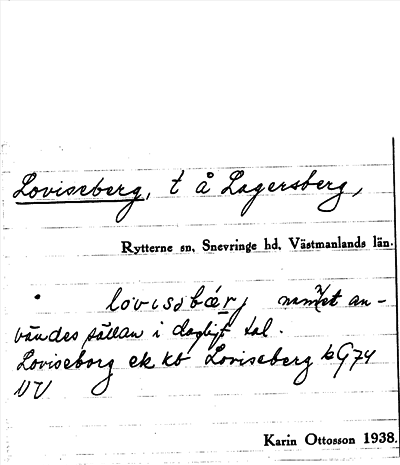 Loviseberg, t å Lagersberg,
Rytterne sn, Snevringe hd, Västmanlands län.
lovisəbærj namnet an-
vändes sällan i dagligt tal.
Loviseborg ek kb Loviseberg bG74
NV
Karin Ottosson 1938.